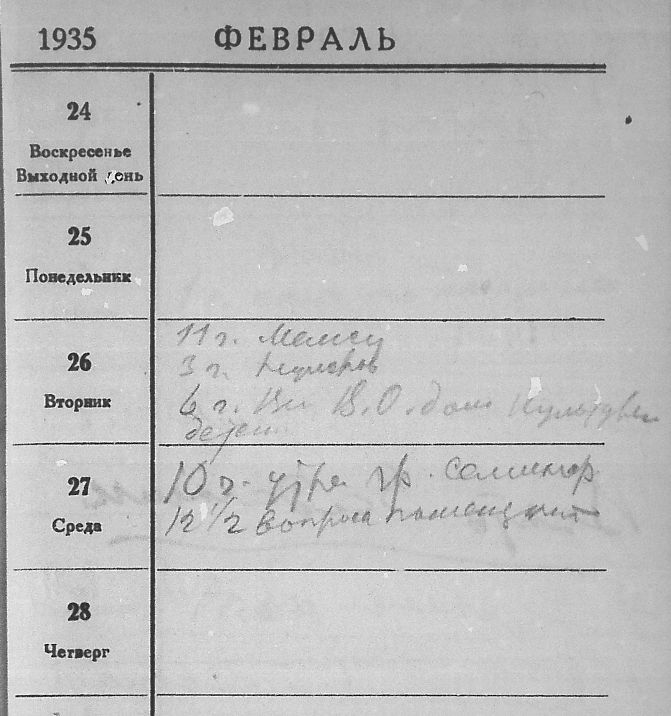 1935 ФЕВРАЛЬ
24
Воскресенье
Выходной день
25
Понедельник
26
Вторник
11 г.
3 г.
6 г. В.О. дом культуры
27
Среда
10 г. утра гр. семинар
12 1/2 вопрос
28
Четверг